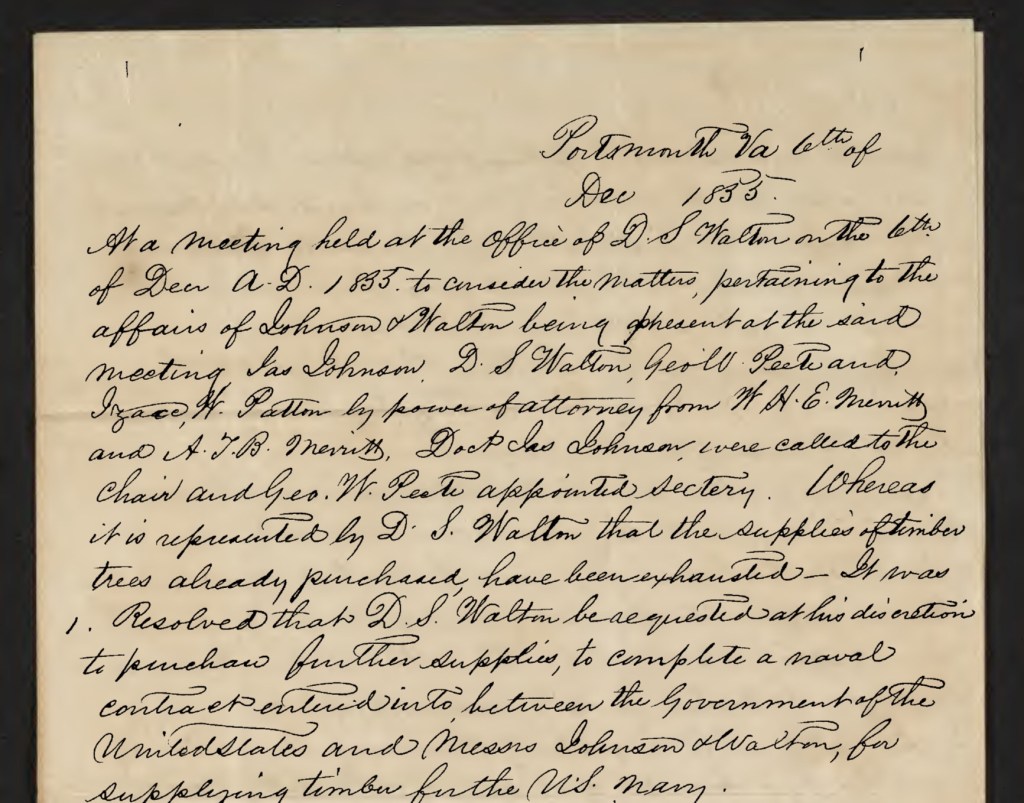 Portsmouth Va 6th of
Dec 1835.
At a meeting held at the office of D. S Walton on the 6th
of Decr A. D. 1835. to consider the matters, pertaining to the
affairs of Johnson & Walton being present at the said
meeting Jas Johnson, D. S Walton, Geo W. Peete and,
Izaac, W. Patton by power of attorney from W H. E. Merritt
and A. T. B. Merritt, Doct Jas Johnson, were called to the
Chair and Geo. W. Peete appointed sectery. Whereas
it is represented by D. S. Walton that the supplies of timber
trees already purchased, have been exhausted — It was
1. Resolved that D. S. Walton be requested at his discretion
to purchase further supplies, to complete a naval
contract entered into, between the Government of the
United States and Messrs Johnson & Walton, for
supplying timber for the U.S. Navy.